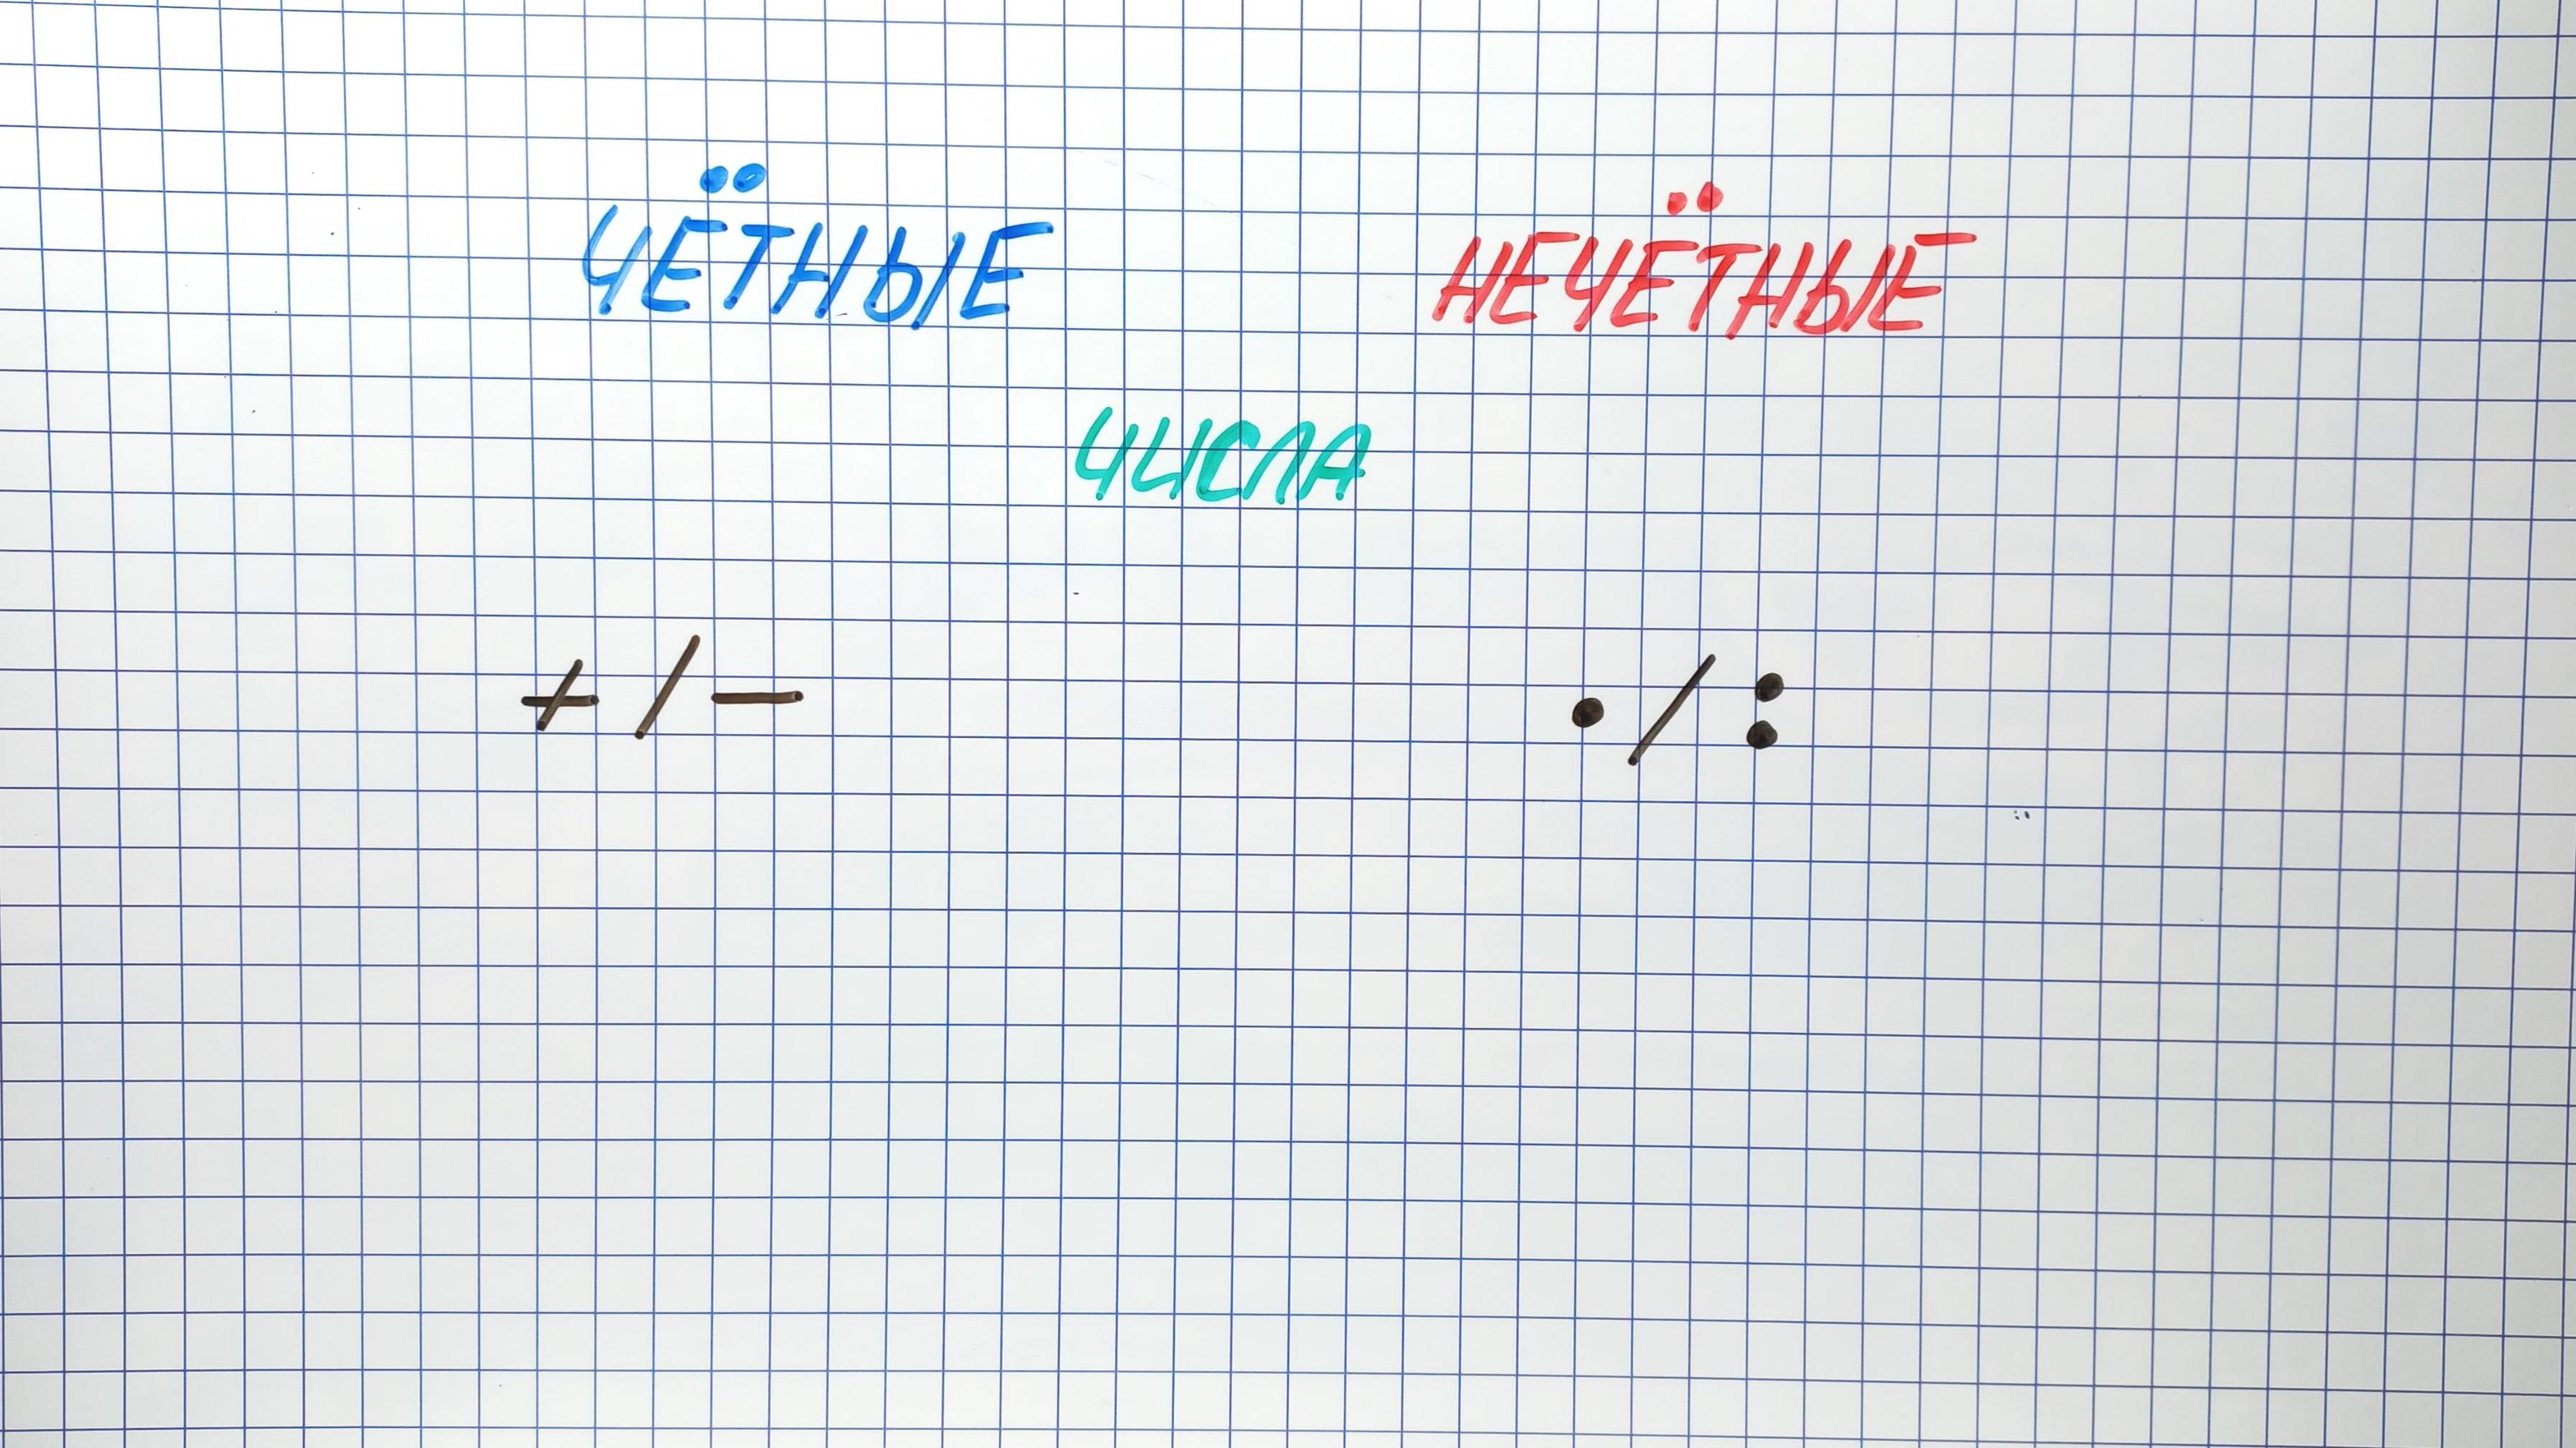 ЧЁТНЫЕ НЕЧЁТНЫЕ
ЧИСЛА
+/− •/: